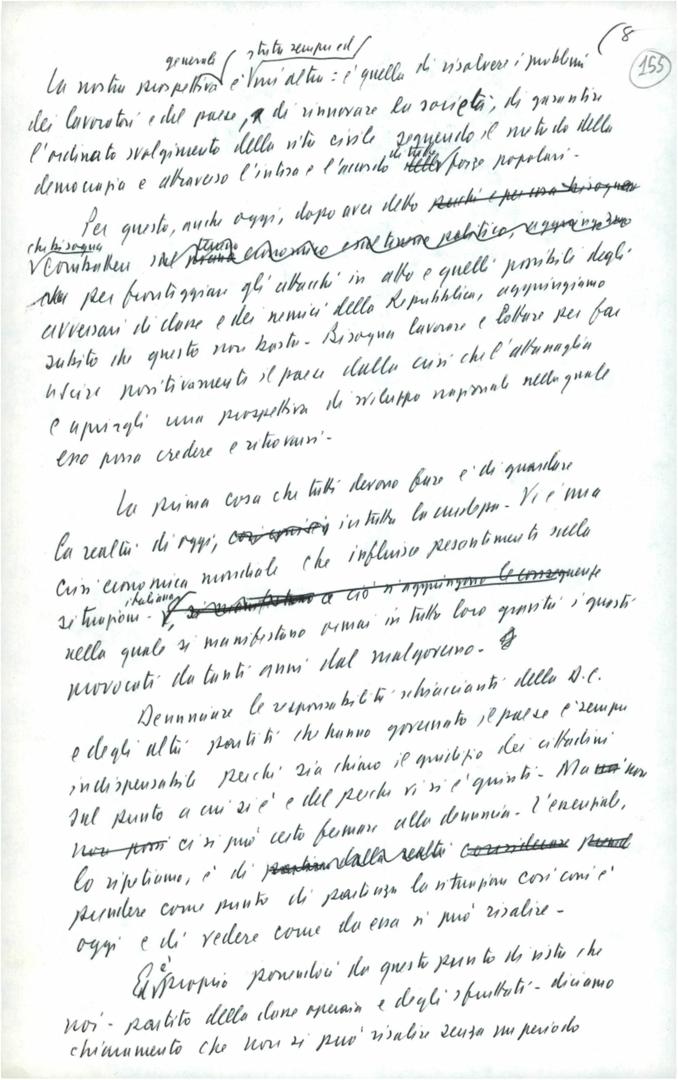 (8
155
generale stata sempre ed
La nostra prospettiva è un'altra: è quella di risolvere i problemi
dei lavoratori e del paese, di rinnovare la società, di garantire
l'ordinato svolgimento della vita civile seguendo il metodo della
di tutte
democrazia e attraverso l'intesa e l'accordo delle forze popolari.
Per questo, anche oggi, dopo aver detto perché e per cosa bisogna
che bisogna terreno
combattere sul piano economico e sul terreno politico, aggiungiamo
per fronteggiare gli attacchi in atto e quelli possibili degli
avversari di classe e dei nemici della Repubblica, aggiungiamo
subito che questo non basta. Bisogna lavorare e lottare per far
uscire positivamente il paese dalla crisi che l'attanaglia
e aprirgli una prospettiva di sviluppo nazionale nella quale
esso possa credere e ritrovarsi.
La prima cosa che tutti devono fare è di guardare
la realtà di oggi, così com'è, in tutta la sua
crisi economica mondiale che influisce pesantemente sulla
italiana
situazione. a ciò si aggiungono le conseguenze
nella quale si manifestano ormai in tutta loro gravità i guasti
provocati da tanti anni dal malgoverno.
Denunciare le responsabilità schiaccianti della D.C.
e degli altri partiti che hanno governato il paese è sempre
indispensabile perché sia chiaro il giudizio dei cittadini
sul punto a cui si è e del perché vi si è giunti. Ma non
non ci si può certo fermare alla denuncia. L'essenziale,
lo ripetiamo, è di partire dalla realtà considerare
prendere come punto di partenza la situazione così com'è
oggi e di vedere come da essa si può risalire.
È proprio ponendoci da questo punto di vista che
noi - partito della classe operaia e degli sfruttati - diciamo
chiaramente che non si può risalire senza un periodo